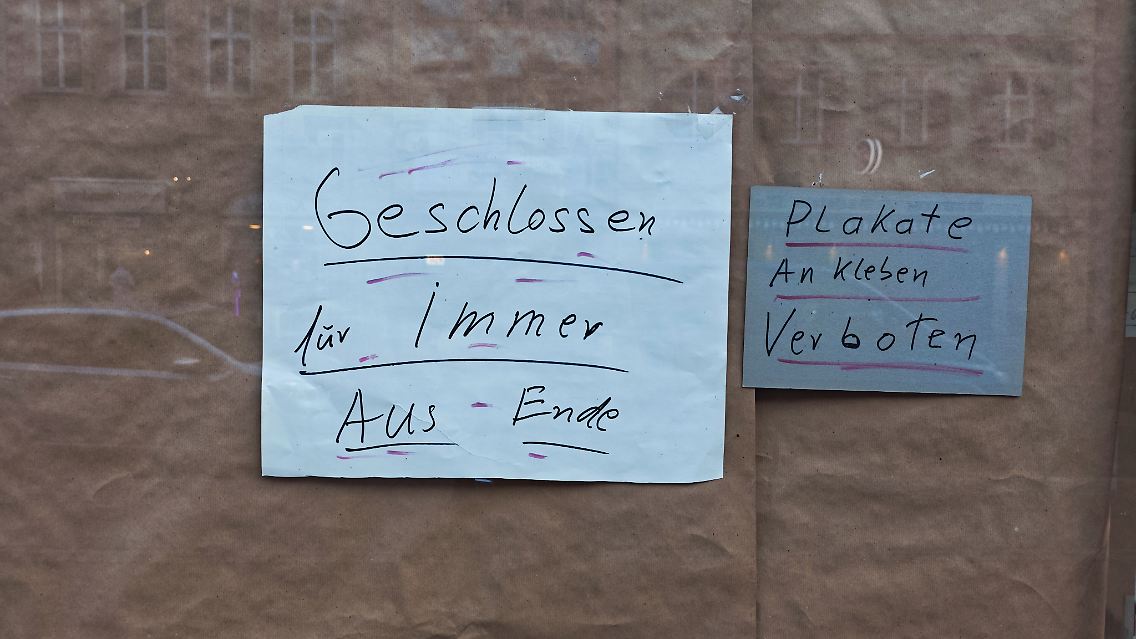 Geschlossen
für immer
Aus - Ende
Plakate
An kleben
Verboten